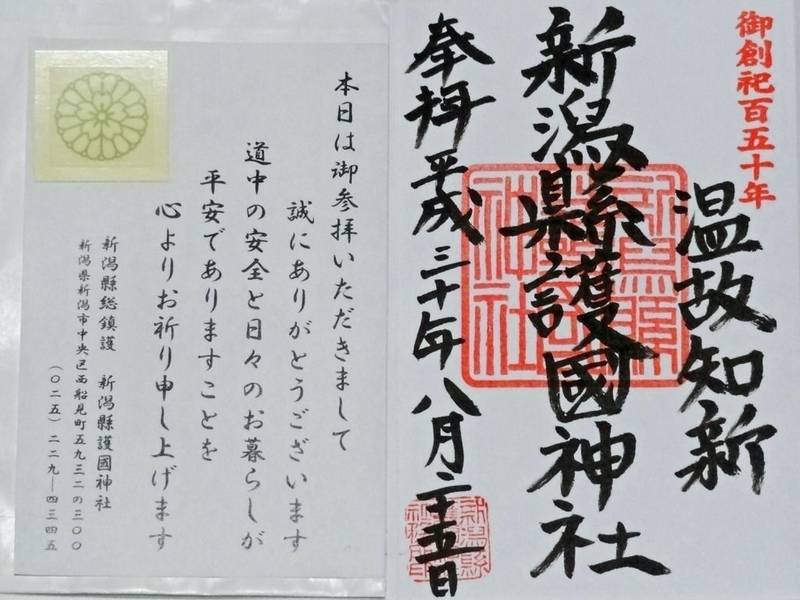 御創祀百五十年
温故知新
新潟縣護國神社
奉拝 平成三十年八月二十五日
本日は御参拝いただきまして
誠にありがとうございます
道中の安全と日々のお暮らしが
平安でありますことを
心よりお祈り申し上げます
新潟縣総鎮護 新潟縣護國神社
新潟県新潟市中央区西船見町五九三二の三〇〇
(〇二五)二二九―四三四五